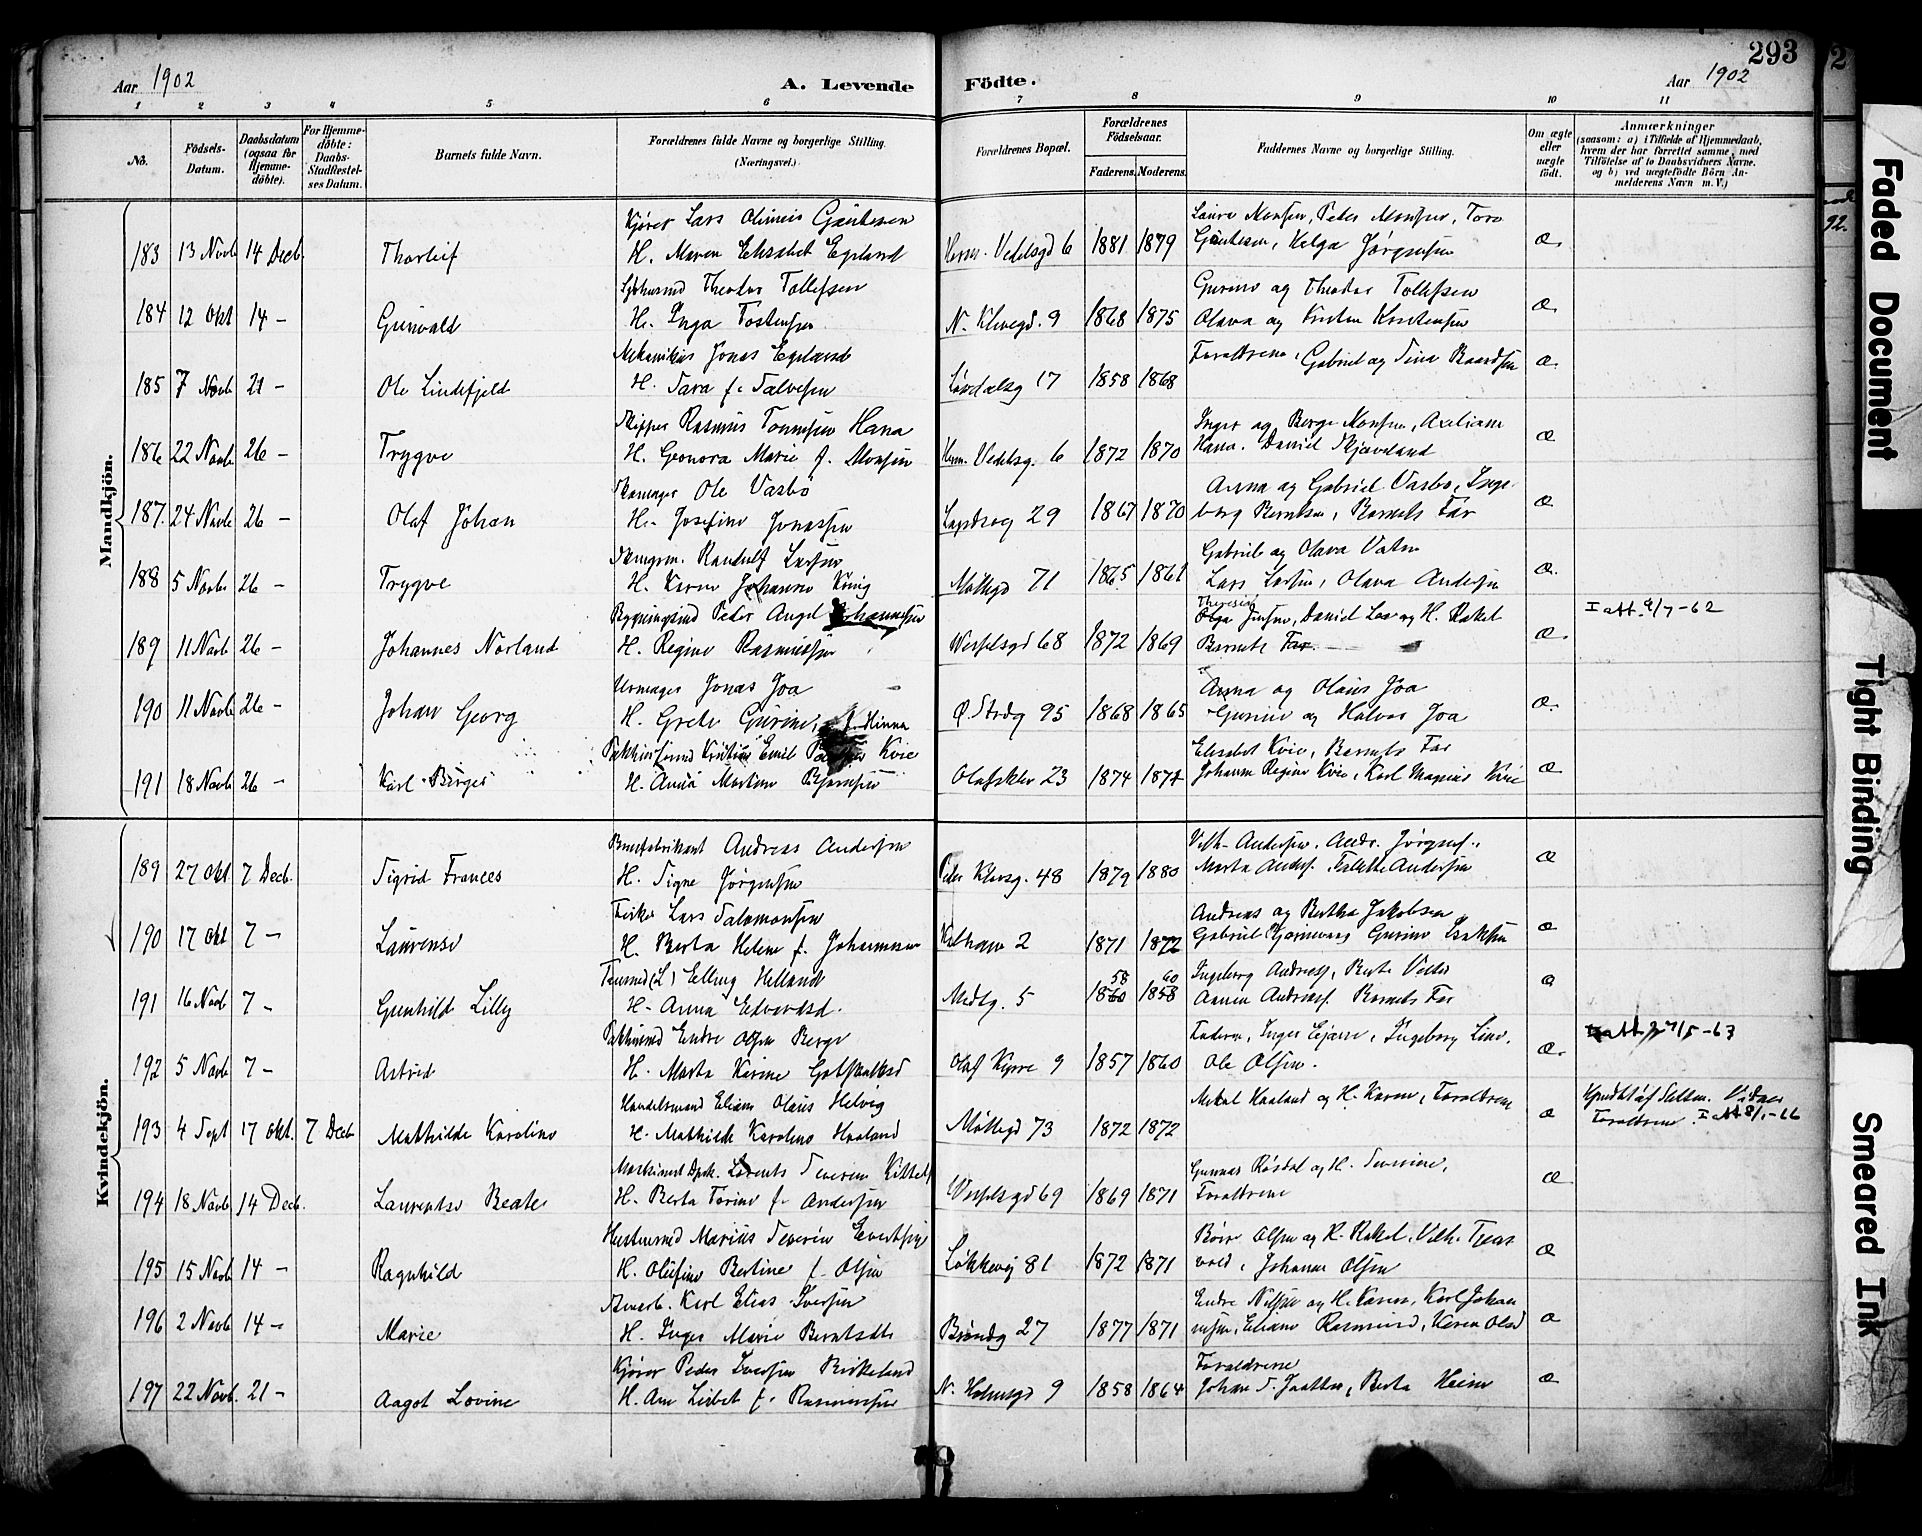 Aar 1902
A. Levende
Födte.
293
Aar 1902
1 2 3 4 5 6 7 8 9 10 11
No.
Födsels-Datum.
Daabsdatum (ogsaa for Hjemmedöbte).
For Hjemmedöbte: Daabs-Stadfæstelses Datum.
Barnets fulde Navn.
Forældrenes fulde Navne og borgerlige Stilling. (Næringsvei.)
Forældrenes Bopæl.
Forældrenes Födselsaar.
Faderens. Moderens.
Faddernes Navne og borgerlige Stilling.
Om ægte eller uægte födt.
Anmærkninger
(saasom: a) i Tilfælde af Hjemmedaab,
hvem der har forrettet samme, med
Tilföielse af to Daabsvidners Navne.
og b) ved uægtefödte Börn Anmelderens Navn m. V.)
Mandkjön.
Kjører Lars Olineus Gautesen Laura Monsen, Peder Monsen, Tora
183 13 Novb 14 Decb. Thorleif H. Maren Elisabet Egeland Herm. Vedelsgd 6 1881 1879 Gautesen, Helga Jørgensen æ
Theodor Tollefsen Gurine og Theodor Tollefsen
184 12 Okt 14 – Gunvald H. Inga Tostensen N. Klevegd. 9 1868 1875 Olava og Kristen Kristensen æ
Mekanikus Jonas Egeland Forældrene, Gabriel og Tina Baardsen
185 7 Novb 21 – Ole Lindefjeld H. Sara f. Salvesen 17 1858 1868 æ
Skipper Rasmus Tonnesen Hana Inger og Berge Monsen, Axeliane
186 22 Novb 26 – Trygve H. Geonora Marie f. Monsen Herm. Vedelsg. 6 1872 1870 Hana. Daniel Skjæveland æ
Skomager Ole Vasbø Anna og Gabriel Vasbø, Inge-
187. 24 Novb 26 – Olaf Johan H. Josefine Jonassen 29 1867 1870 borg Berntsen, Barnets Far æ
Randulf Larsen Gabriel og Olava Vatne
188 5 Novbr 26 – Trygve H. Karen Johanne König Møllegd 71 1865 1861 Lars Larsen, Olava Andersen æ
Peder Angel Johannesen Olga Jensen, Daniel Lea og H. Rakel I att. 9/7-62
189 11 Novb 26 – Johannes Norland H. Regine Rasmussen Verkelsgd 68 1872 1869 Barnets Far æ
Urmager Jonas Joa Anna og Olaus Joa
190 11 Novb 26 – Johan Georg H. Grete Gurine, f. Hinna Ø. Strdg 95 1868 1865 Gurine og Halvor Joa æ
Kristian Emil Kvie Elisabet Kvie, Barnets Far
191 18 Novb 26 – Karl Birger H. Anna Martine Bjørnsen Olafsklev 23 1874 1874 Johanne Regine Kvie, Karl Magnus Kvie æ
Kvindekjön.
Andreas Andersen Vilh. Andersen, Andr. Jørgens.,
189 27 Okt 7 Decb. Sigrid Frances H. Signe Jørgensen Peder Klowsg. 48 1879 1880 Marta Anders. Andersen æ
Fisker Lars Salamonsen Andreas og Bertha Jakobsen
190 17 Okt 7 – Laurense H. Berta Helene f. Johannesen Kalhamr 2 1871 1872 Gabriel Bjørnevaag Gurine Isaksen æ
Tømmermd (L) Elling Helland 58 60 Ingeborg Andreass, Berte
191 16 Novb 7 – Gunhild Lilly H. Anna Edvardsd. Medlg. 5 1860 1858 Annen Andreass. Barnets Far æ
Endre Olsen Berge Faderen, Inger Ejane, Ingeborg Line, I att 27/5-63
192 5 Novb 7 – Astrid H. Marta Karine Gotskalksd Olaf Kyrre 9 1857 1860 Ole Olsen. æ
Handelsmand Eliam Olaus Helvig Mikal Haaland og H. Karen, Forældrene
193 4 Sept 17 Okt. 7 Decb Mathilde Karoline H. Mathilde Karoline Haaland Møllegd 73 1872 1872 æ Forældrene. I att 8/1-66
Lorents Severin Kittels Gunnar Røsdal og H. Severine,
194 18 Novb 14 Decb. Laurentse Beate H. Berta Torine f. Andersen Verkelsgd 69 1869 1871 Forældrene æ
Marius Severin Evertsen Børre Olsen og H. Rakel, Vilh. Tjens-
195 15 Novb 14 – Ragnhild H. Olufine Bertine f. Olsen Løkkevej 81 1872 1871 vold, Johanne Olsen æ
Karl Elias Iversen Endre Nilsen og H. Karen, Karl Johan-
196 2 Novb 14 – Marie H. Inger Marie Berntsdtr Brøndg 27 1877 1871 nesen, Eliane Rasmusd, Karen Olsd æ
Kjører Peder Iversen Birkeland Forældrene
197 22 Novb. 21 – Aagot Lovine H. Ane Lisbet f. Rasmussen N. Holmegd 9 1858 1864 Johan S. Jaatten, Berta Heien æ
Faded Document
Tight Binding
Smeared Ink